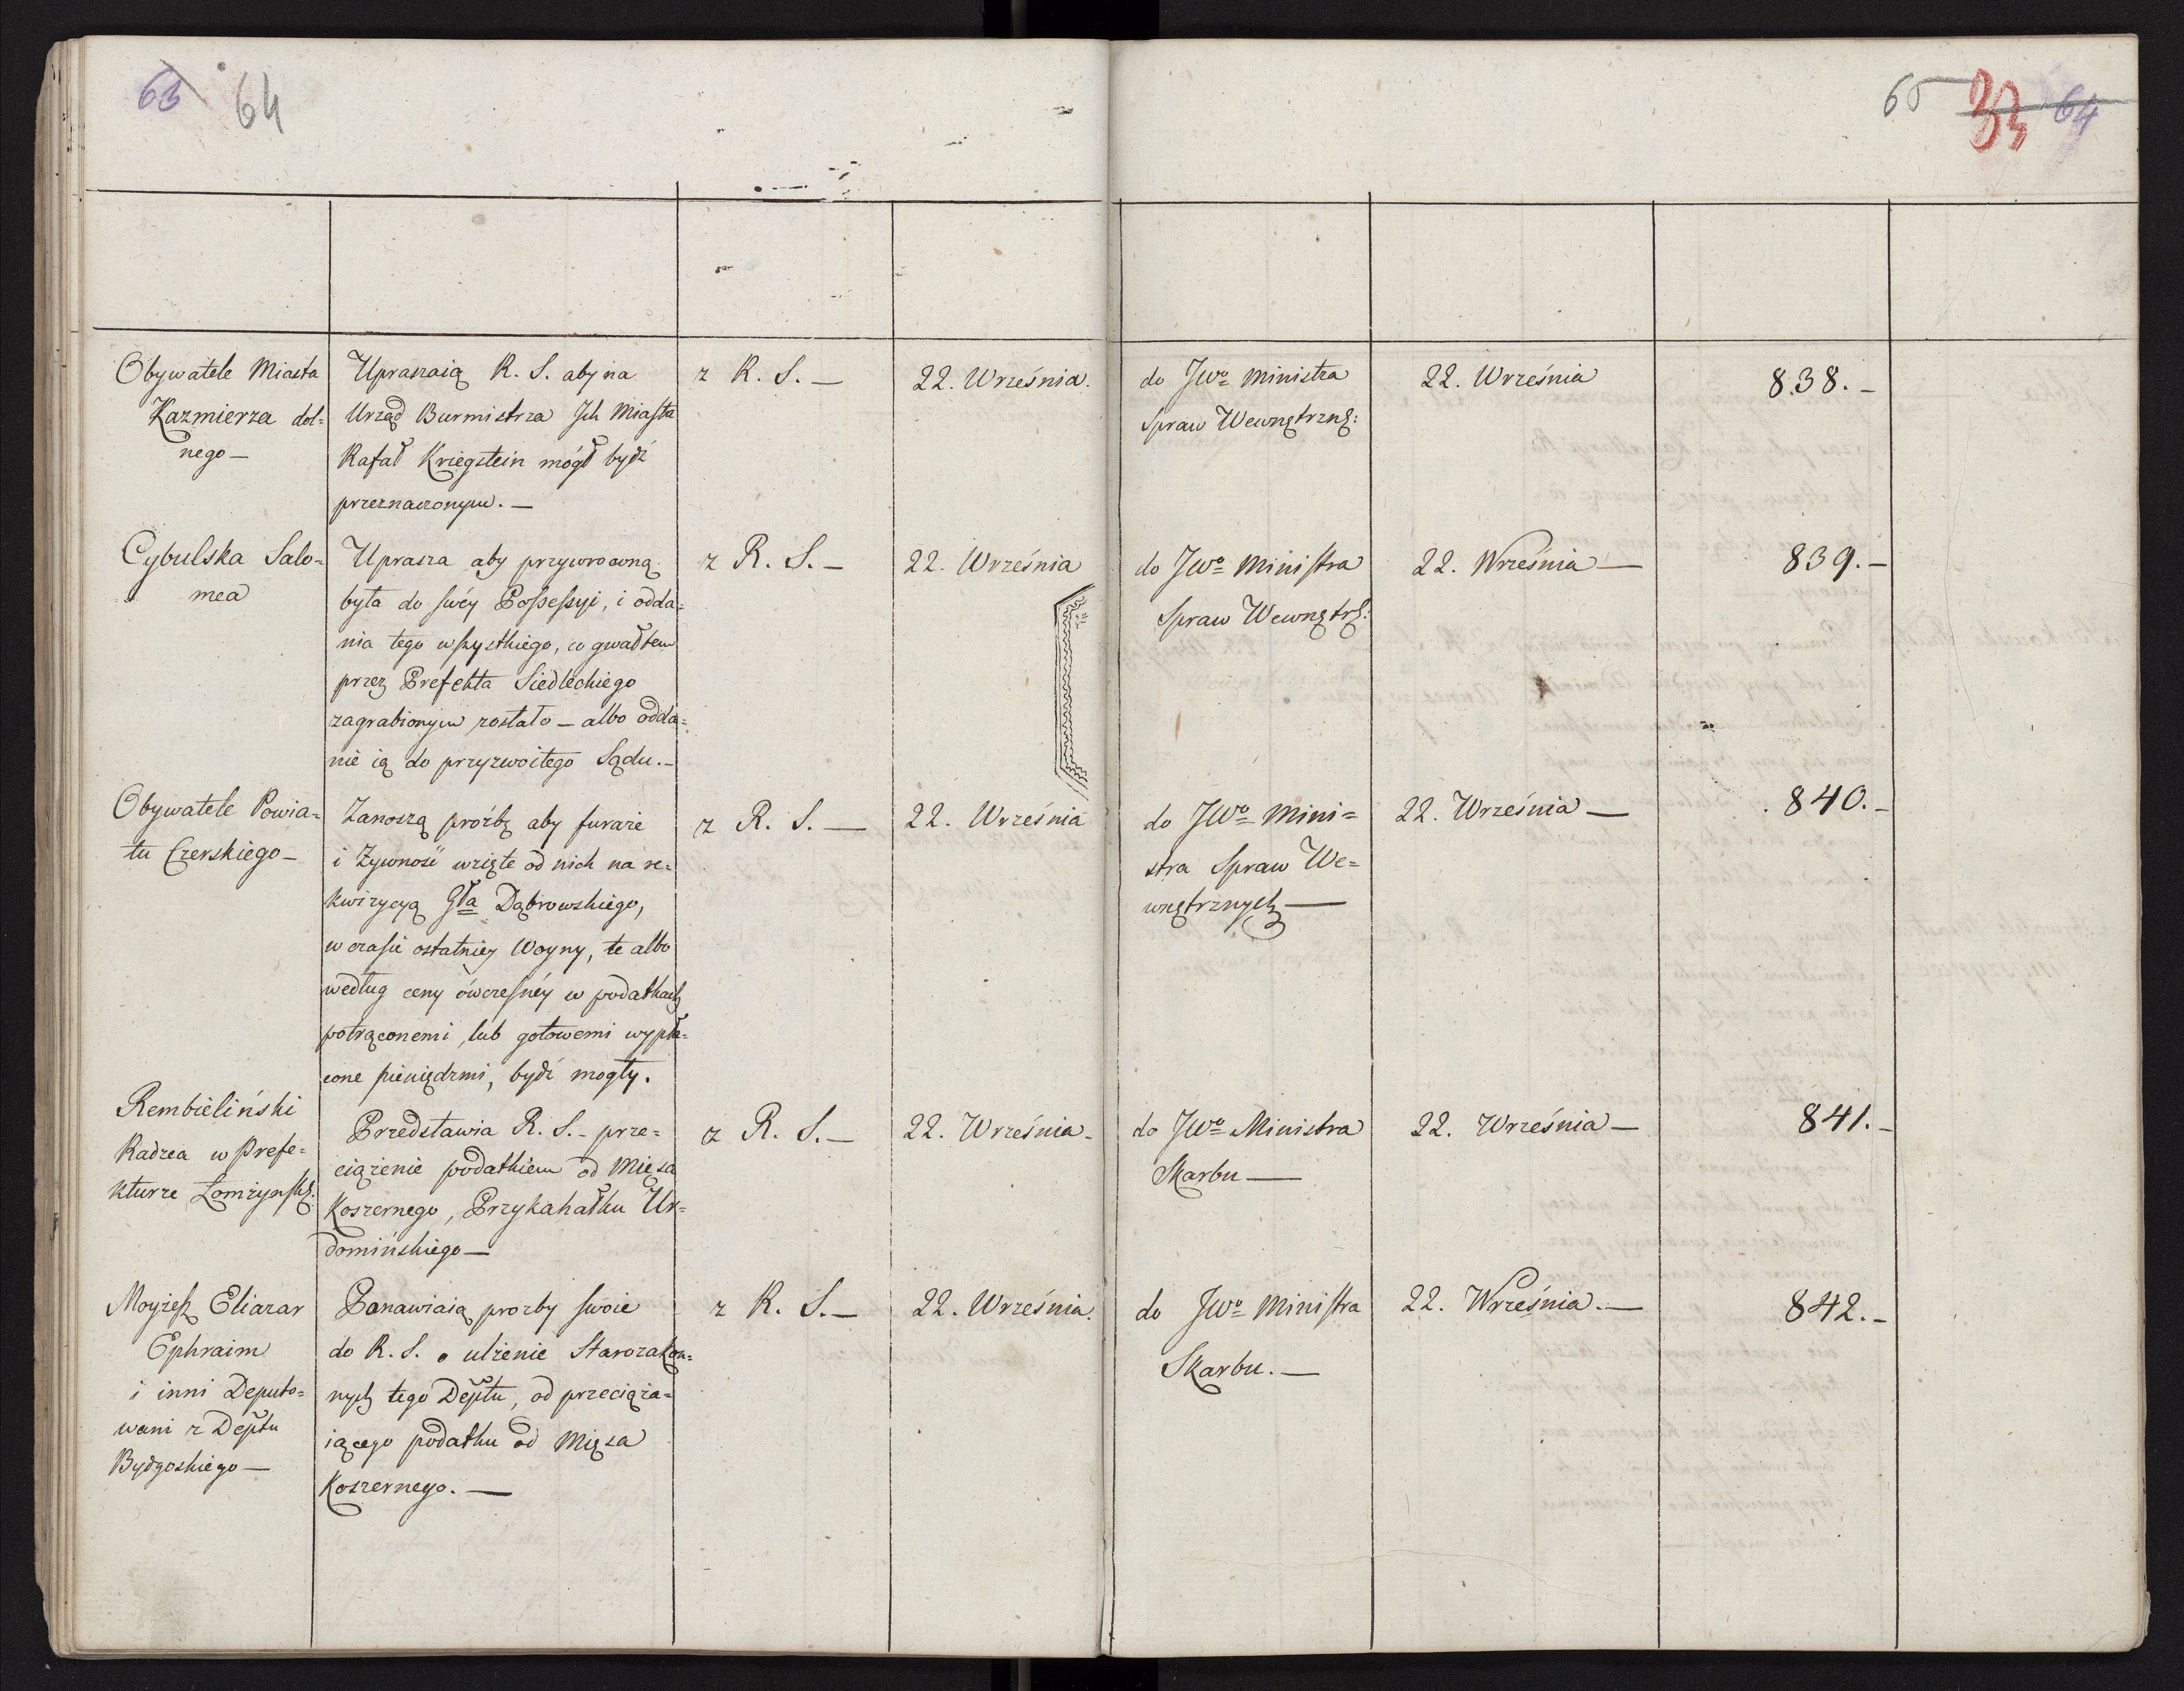 63 64
65 33 64
Obywatele Miasta
Kazmierza dol=
nego —
Upraszaią R. S. aby na
Urząd Burmistrza Ich Miasta
Rafał Kriegstein mógł bydź
przeznaczonym. —
z R. S. —
22. Września.
do JWo Ministra
Spraw Wewnętrzn:
22. Września
838. —
Cybulska Salo=
mea
Uprasza aby przywrocona
była do swéy Possessyi, i odda=
nia tego wszystkiego, co gwałtem
przez Prefekta Siedleckiego
zagrabionym zostało — albo odda=
nie ią do przyzwoitego Sądu. —
z R. S. —
22. Września
do JWo Ministra
Spraw Wewnętrz:
22. Września —
839. —
Obywatele Powia=
tu Czerskiego —
Zanoszą proźbę aby furaże
i Żywność wzięte od nich na re=
kwizycyą Gła Dąbrowskiego,
w czasie ostatniey Woyny, te albo
według ceny ówczesnéy w podatkach
potrąconemi, lub gotowemi wypła=
cone pieniędzmi, bydź mogły.
z R. S. —
22. Września
do JWo Mini=
stra Spraw We=
wnętrznych —
22. Września —
840. —
Rembieliński
Radzca w Prefe=
kturze Łomżyńsk:
Przedstawia R. S. — prze=
ciążenie podatkiem od Mięsa
Koszernego, Przykahałku Ur=
domińskiego —
z R. S. —
22. Września —
do JWo Ministra
Skarbu —
22. Września —
841. —
Moyżesz Eliazar
Ephraim
i inni Deputo=
wani z Deptu
Bydgoskiego —
Ponawiaią prozby swoie
do R. S. o ulżenie Starozakon=
nych tego Deptu, od przeciąża=
iącego podatku od Mięsa
Koszernego. —
z R. S. —
22. Września.
do JWo Ministra
Skarbu. —
22. Września. —
842. —